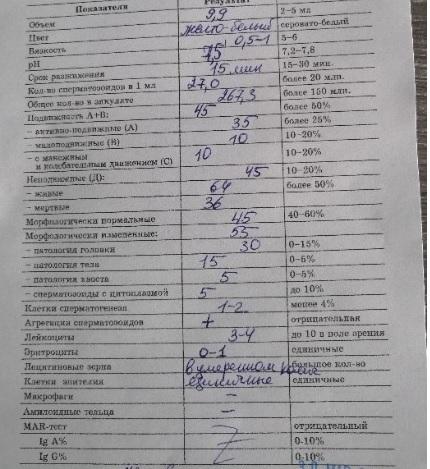 Показатели Результат
Объем 9,9 2–5 мл
Цвет желто-белый серовато-белый
Вязкость 0,5–1 5–6
pH 7,5 7,2–7,8
Срок разжижения 15 мин 15–30 мин.
Кол-во сперматозоидов в 1 мл 27,0 более 20 млн.
Общее кол-во в эякулате 267,3 более 150 млн.
Подвижность А+В: 45 более 50%
– активно-подвижные (А) 35 более 25%
– малоподвижные (В) 10 10–20%
– с манежным
и колебательным движением (С) 10 10–20%
Неподвижные (Д): 45 10–20%
– живые 64 более 50%
– мертвые 36
Морфологически нормальные 45 40–60%
Морфологически измененные: 55
– патология головки 30 0–15%
– патология тела 15 0–5%
– патология хвоста 5 0–5%
– сперматозоиды с цитоплазмой 5 до 10%
Клетки сперматогенеза 1–2 менее 4%
Агрегация сперматозоидов + отрицательная
Лейкоциты 3–4 до 10 в поле зрения
Эритроциты 0–1 единичные
Лецитиновые зерна в умеренном кол-ве большое кол-во
Клетки эпителия единичные единичные
Макрофаги –
Амилоидные тельца –
MAR-тест отрицательный
Ig A% 0-10%
Ig G% 0-10%